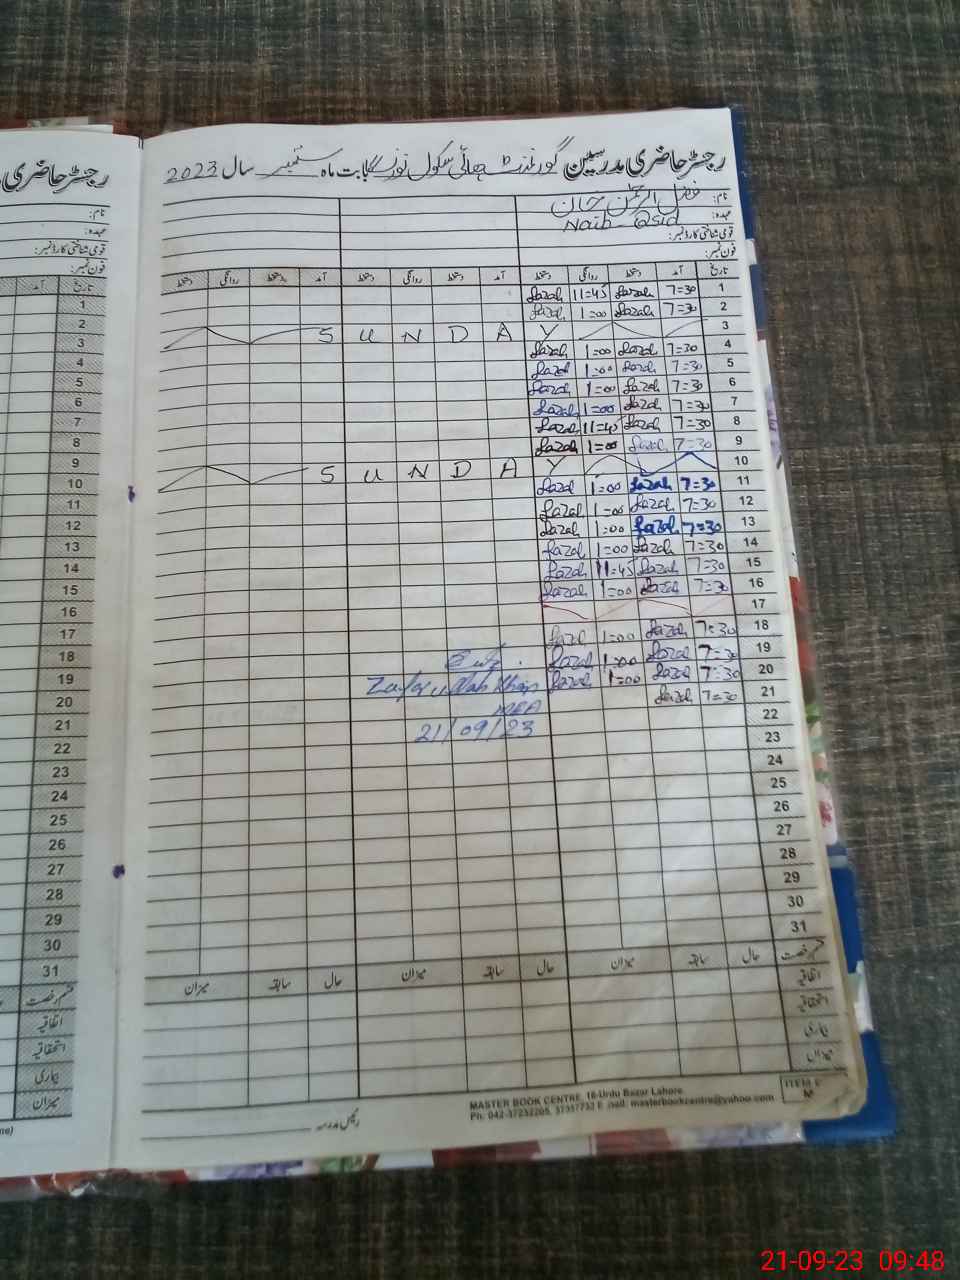 رجسٹر حاضری مدرسین گورنمنٹ ہائی سکول نورنگ بابت ماہ ستمبر سال 2023
رجسٹر حاضری
نام: فضل الرحمٰن خان
عہدہ: Naib Qasid
قومی شناختی کارڈ نمبر:
فون نمبر:
نام:
عہدہ:
قومی شناختی کارڈ نمبر:
فون نمبر:
تاریخ آمد دستخط روانگی دستخط آمد دستخط روانگی دستخط
1 7=30 Fazal 11=45 Fazal
2 7=30 Fazal 1=00 Fazal
3 S U N D A Y
4 7=30 Fazal 1=00 Fazal
5 7=30 Fazal 1=00 Fazal
6 7=30 Fazal 1=00 Fazal
7 7=30 Fazal 1=00 Fazal
8 7=30 Fazal 11=45 Fazal
9 7=30 Fazal 1=00 Fazal
10 S U N D A Y
11 7=30 Fazal 1=00 Fazal
12 7=30 Fazal 1=00 Fazal
13 7=30 Fazal 1=00 Fazal
14 7=30 Fazal 1=00 Fazal
15 7=30 Fazal 11=45 Fazal
16 7=30 Fazal 1=00 Fazal
17
18 7=30 Fazal 1=00 Fazal
19 7=30 Fazal 1=00 Fazal
20 7=30 Fazal 1=00 Fazal
21 7=30 Fazal
Zafar ullah Khan
MEA
21/09/23
22
23
24
25
26
27
28
29
30
31
قسم رخصت حال سابقہ میزان حال سابقہ میزان حال سابقہ میزان
اتفاقیہ
استحقاقیہ
بیماری
میزان
رئیس مدرسہ
MASTER BOOK CENTRE, 16-Urdu Bazar Lahore
Ph: 042-37232205, 37357732 E.mail: masterbookcentre@yahoo.com
تاریخ آمد
1
2
3
4
5
6
7
8
9
10
11
12
13
14
15
16
17
18
19
20
21
22
23
24
25
26
27
28
29
30
31
قسم رخصت
اتفاقیہ
استحقاقیہ
بیماری
میزان
21-09-23 09:48